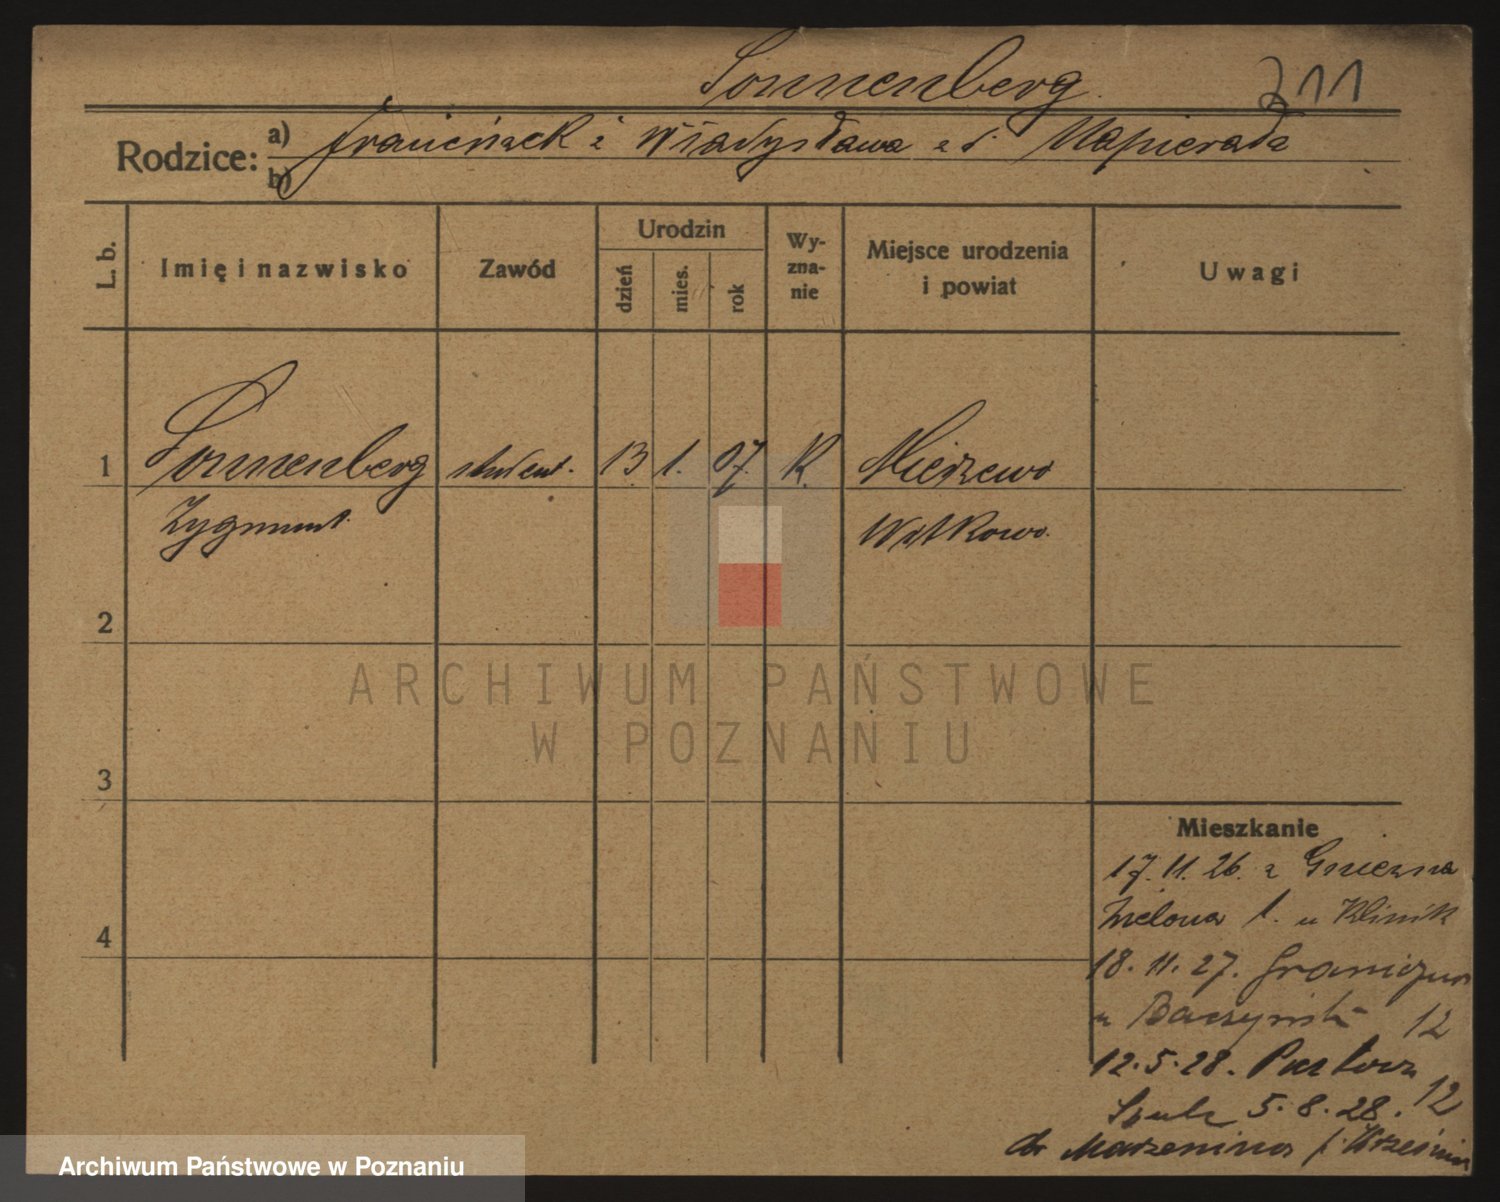 Sonnenberg.
211
Rodzice:
a) Franciszek i Władysława z d. Napierała
b)
L. b.
Imię i nazwisko
Zawód
Urodzin
dzień
mies.
rok
Wy-
zna-
nie
Miejsce urodzenia
i powiat
Uwagi
1 Sonnenberg student. 13 1. 07. K. Mierzewo
Zygmunt Witkowo.
2
3
4
Mieszkanie
17.11.26. z Gniezna
Zielona 1. u Klinik
18.11.27. Graniczna
u 12
12.5.28.
12
Szulc 5.8.28.
do Marzenina p. Września
ARCHIWUM PAŃSTWOWE
W POZNANIU
Archiwum Państwowe w Poznaniu